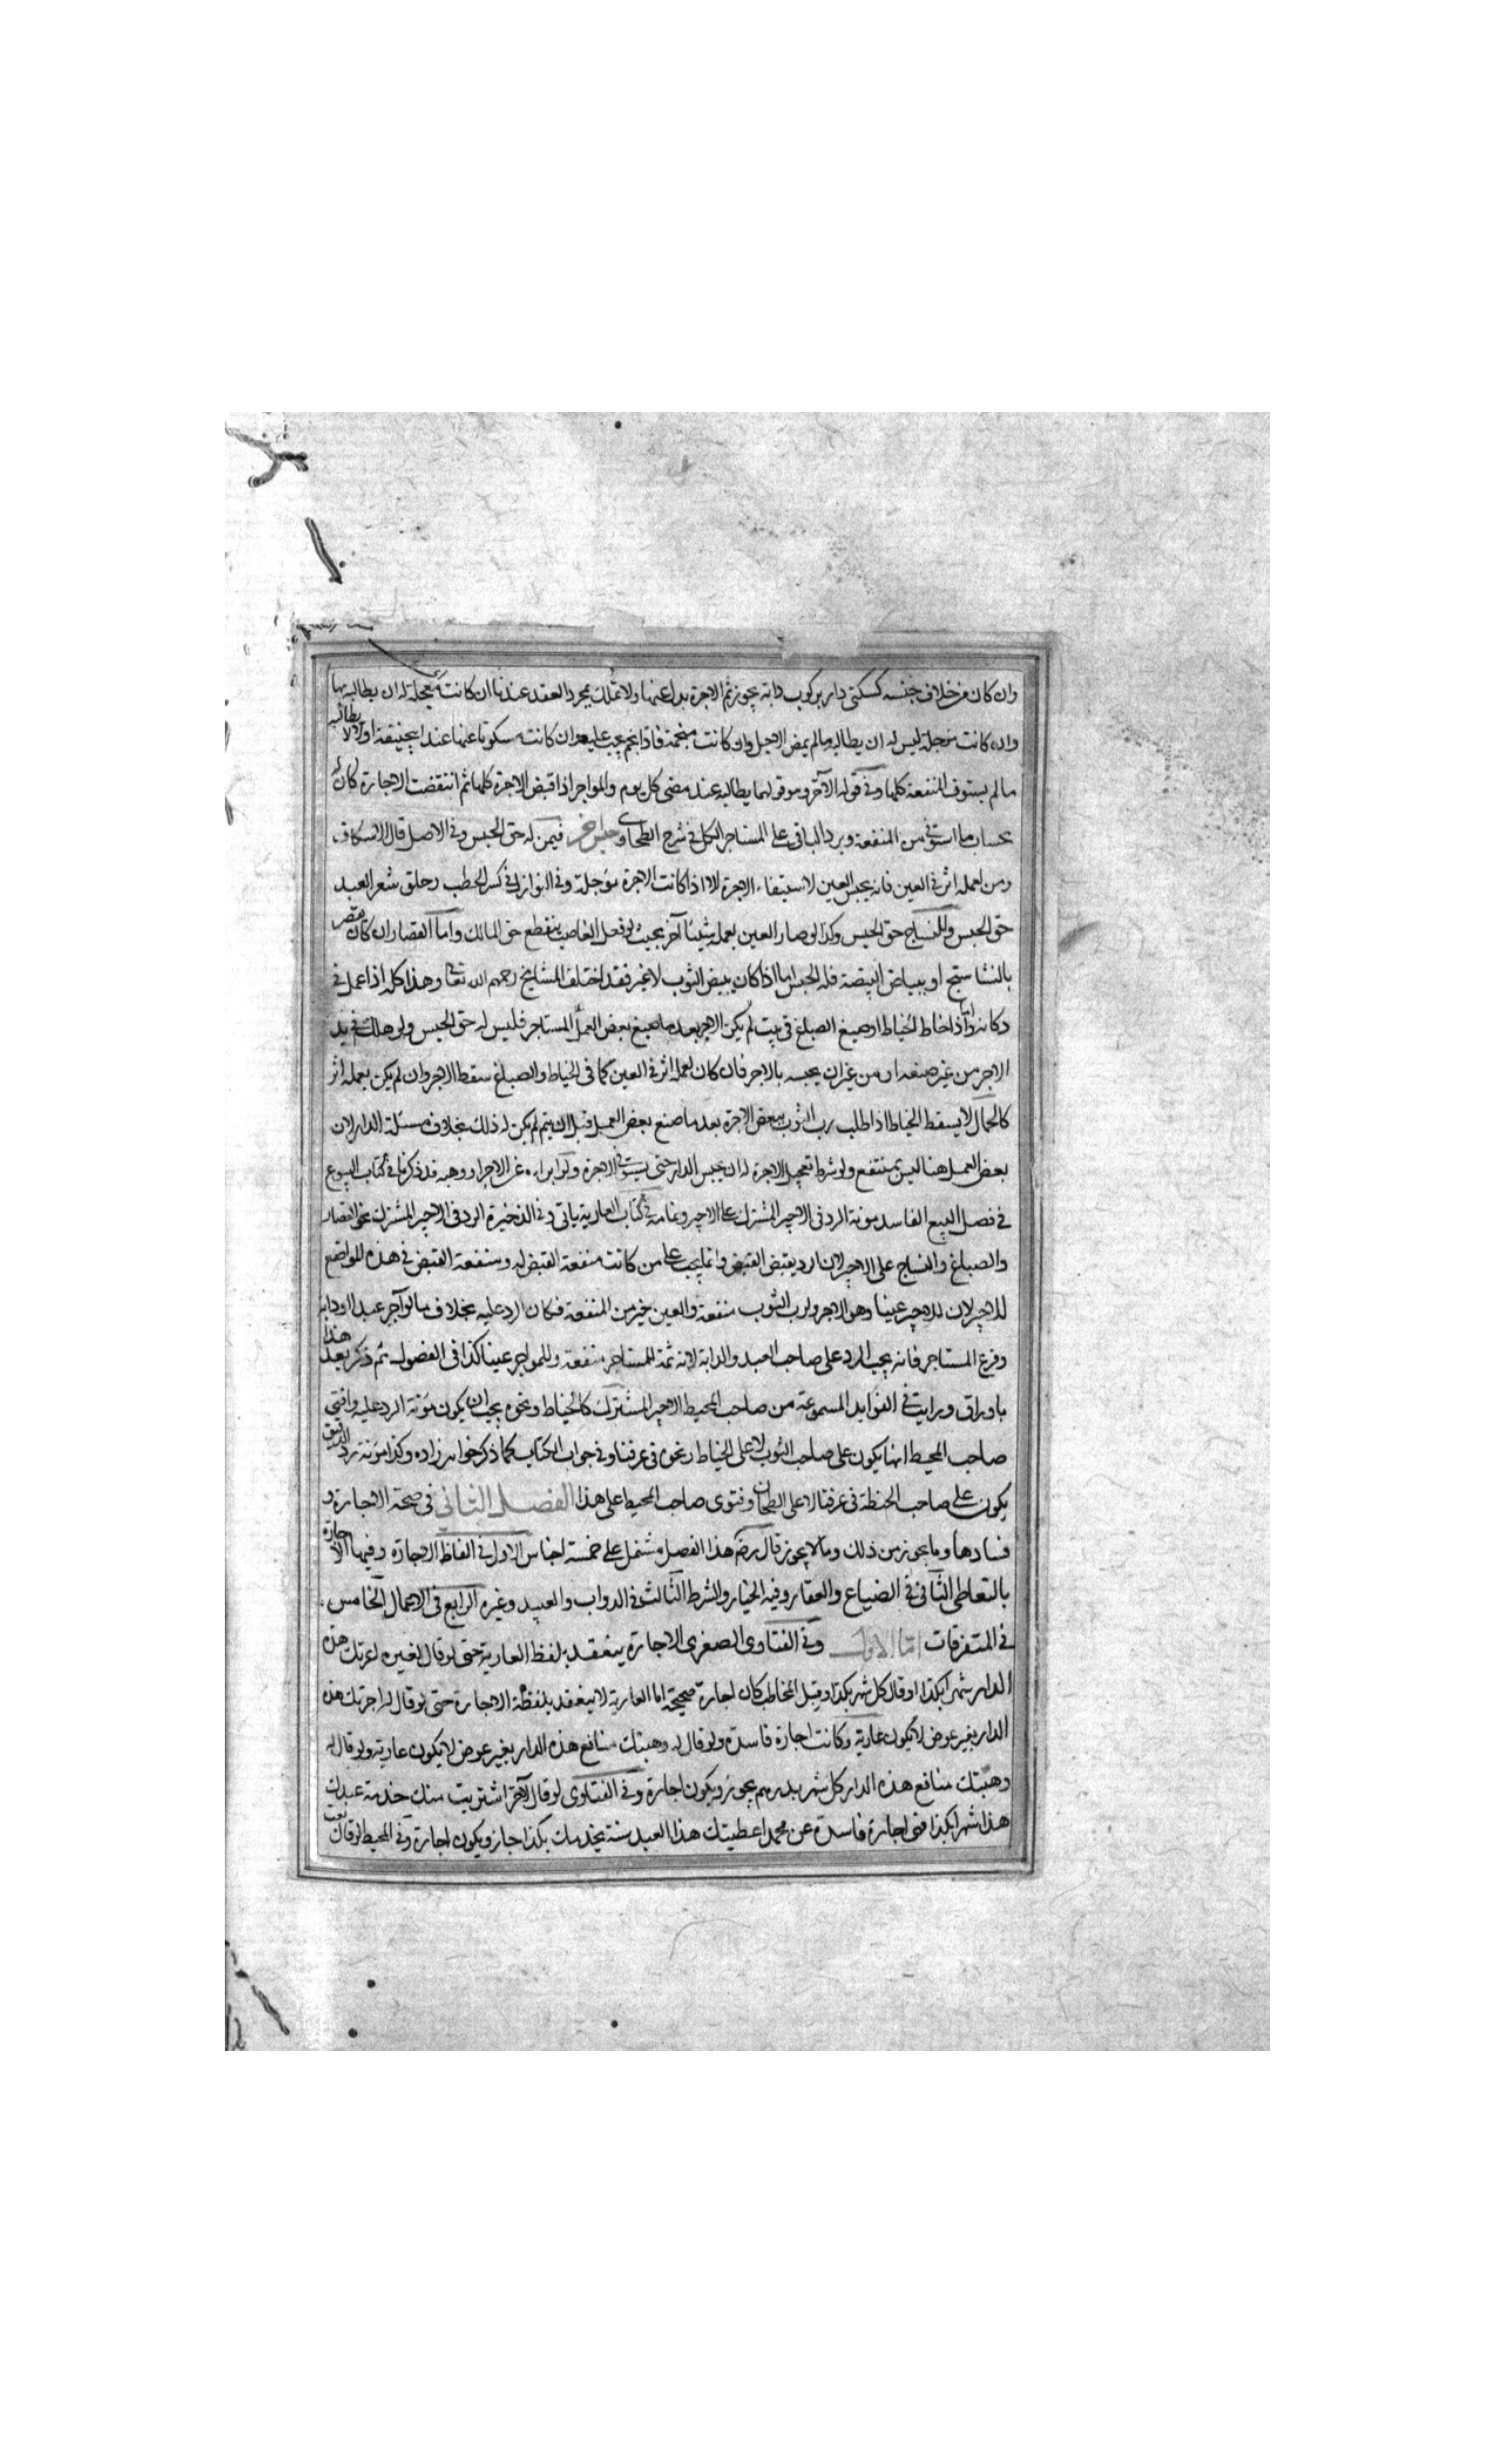 وان كان من خلاف جنسه كسكنى دار بركوب دابة يجوز ثم الاجرة بدل عنها ولا تملك بمجرد العقد عندنا ان كانت معجلة له ان يطالبه بها
وان كانت مؤجلة ليس له ان يطالبه ما لم يمض الاجل وان كانت منجمة فاذا نجم يجب عليه وان كانت مسكوتا عنها عند ابيحنيفة اولا لا يطالبه
ما لم يستوف المنفعة كلها وفي قوله الآخر وهو قولهما يطالبه عند مضى كل يوم والمواجر اذا قبض الاجرة كلها ثم انتقضت الاجارة كان له
بحساب ما استوفى من المنفعة ويرد الباقي على المستاجر الكل في شرح الطحاوى جنس آخر فيمن له حق الحبس وفي الاصل قال الاسكاف
ومن لعمله اثر في العين فانه يحبس العين لاستيفاء الاجرة الا اذا كانت الاجرة مؤجلة وفي النوازل في كسر الحطب وحلق شعر العبد
حق الحبس وللنساج حق الحبس وكذا لو صار العين بعمله شيئا آخر بحيث لو فعل الغاصب ينقطع حق المالك واما القصار ان كان يقصر
بالنشاستج او ببياض البيضة فله الحبس اما اذا كان يبيض الثوب لا غير فقد اختلف المشايخ رحمهم الله تعالى وهذا كله اذا عمل في
دكانه واذا خاط الخياط او صبغ الصباغ في بيت المستاجر فليس له حق الحبس ولو هلك في يد
الاجير من غير صنعه او من غير ان يحبسه بالاجر فان كان لعمله اثر في العين كما في الخياط والصباغ سقط الاجر وان لم يكن بعمله اثر
كالحمال لا يسقط الخياط اذا طلب رب الثوب ببعض الاجرة بعد ما صنع بعض العمل قبل ان يتم لم يكن له ذلك بخلاف مسئلة الدار لان
بعض العمل هنا ليس بمنتفع ولو شرط تعجيل الاجرة له ان يحبس الدار حتى يستوفى الاجرة ولو ابراءه عن الاجر او وهبه قد ذكرنا في كتاب البيوع
في فصل البيع الفاسد مونة الرد في الاجير المشترك على الاجير وتمامه في كتاب العارية ياتي وفي الذخيرة الرد في الاجير المشترك نحو القصار
والصباغ والنساج على الاجير لان الرد ينقض القبض وانما يجب على من كانت منفعة القبض له ومنفعة القبض في هذه المواضع
للاجير لان للاجير عينا وهو الاجر ولرب الثوب منفعة والعين خير من المنفعة فكان الرد عليه بخلاف ما لو آجر عبدا او دابة
وفرغ المستاجر فانه يجب الرد على صاحب العبد والدابة لانه ثمة للمستاجر منفعة وللمواجر عينا كذا في الفصول ثم ذكر بعد هذا
باوراق ورايت في الفوايد المسموعة من صاحب المحيط الاجير المشترك كالخياط ونحوه يجب ان يكون مؤنة الرد عليه وافتى
صاحب المحيط انها يكون على صاحب الثوب لا على الخياط ونحوه في عرفنا وفي جواب الكتاب كما ذكر خواهرزاده وكذا مؤنة رد الدقيق
يكون على صاحب الحنطة في عرفنا لا على الطحان وفتوى صاحب المحيط على هذا الفصل الثانى في صحة الاجارة و
فسادها وما يجوز من ذلك وما لا يجوز قال رضه هذا الفصل مشتمل على خمسة اجناس الاول في الفاظ الاجارة وفيها الاجارة
بالتعاطى الثاني في الضياع والعقار وفيه الخيار والشرط الثالث في الدواب والعبيد وغيره الرابع في الاعمال الخامس
في المتفرقات اما الاول وفي الفتاوى الصغرى الاجارة ينعقد بلفظ العارية حتى لو قال لغيره اعرتك هذه
الدار شهرا بكذا او قال كل شهر بكذا وقبل المخاطب كان اجارة صحيحة اما العارية لا ينعقد بلفظة الاجارة حتى لو قال له اجرتك هذه
الدار بغير عوض لا يكون عارية وكانت اجارة فاسدة ولو قال له وهبتك منافع هذه الدار بغير عوض لا يكون عارية ولو قال له
وهبتك منافع هذه الدار كل شهر بدرهم يجوز ويكون اجارة وفي الفتاوى لو قال لآخر اشتريت منك خدمة عبدك
هذا شهرا بكذا فهى اجارة فاسدة عن محمد اعطيتك هذا العبد سنة يخدمك بكذا جاز ويكون اجارة وفي المحيط لو قال بعت